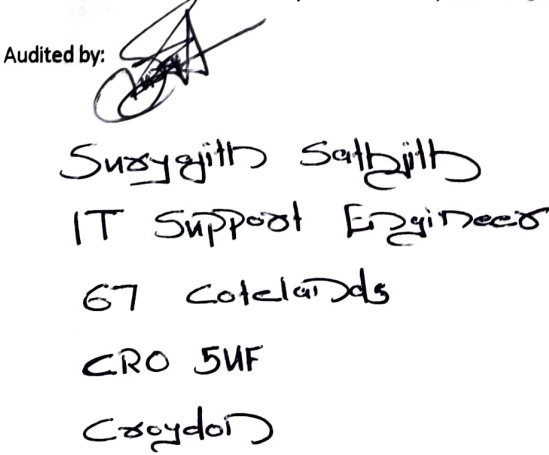 Audited by:
Suryajith Sathjith
IT Support Engineer
67 Cotelands
CR0 5UF
Croydon